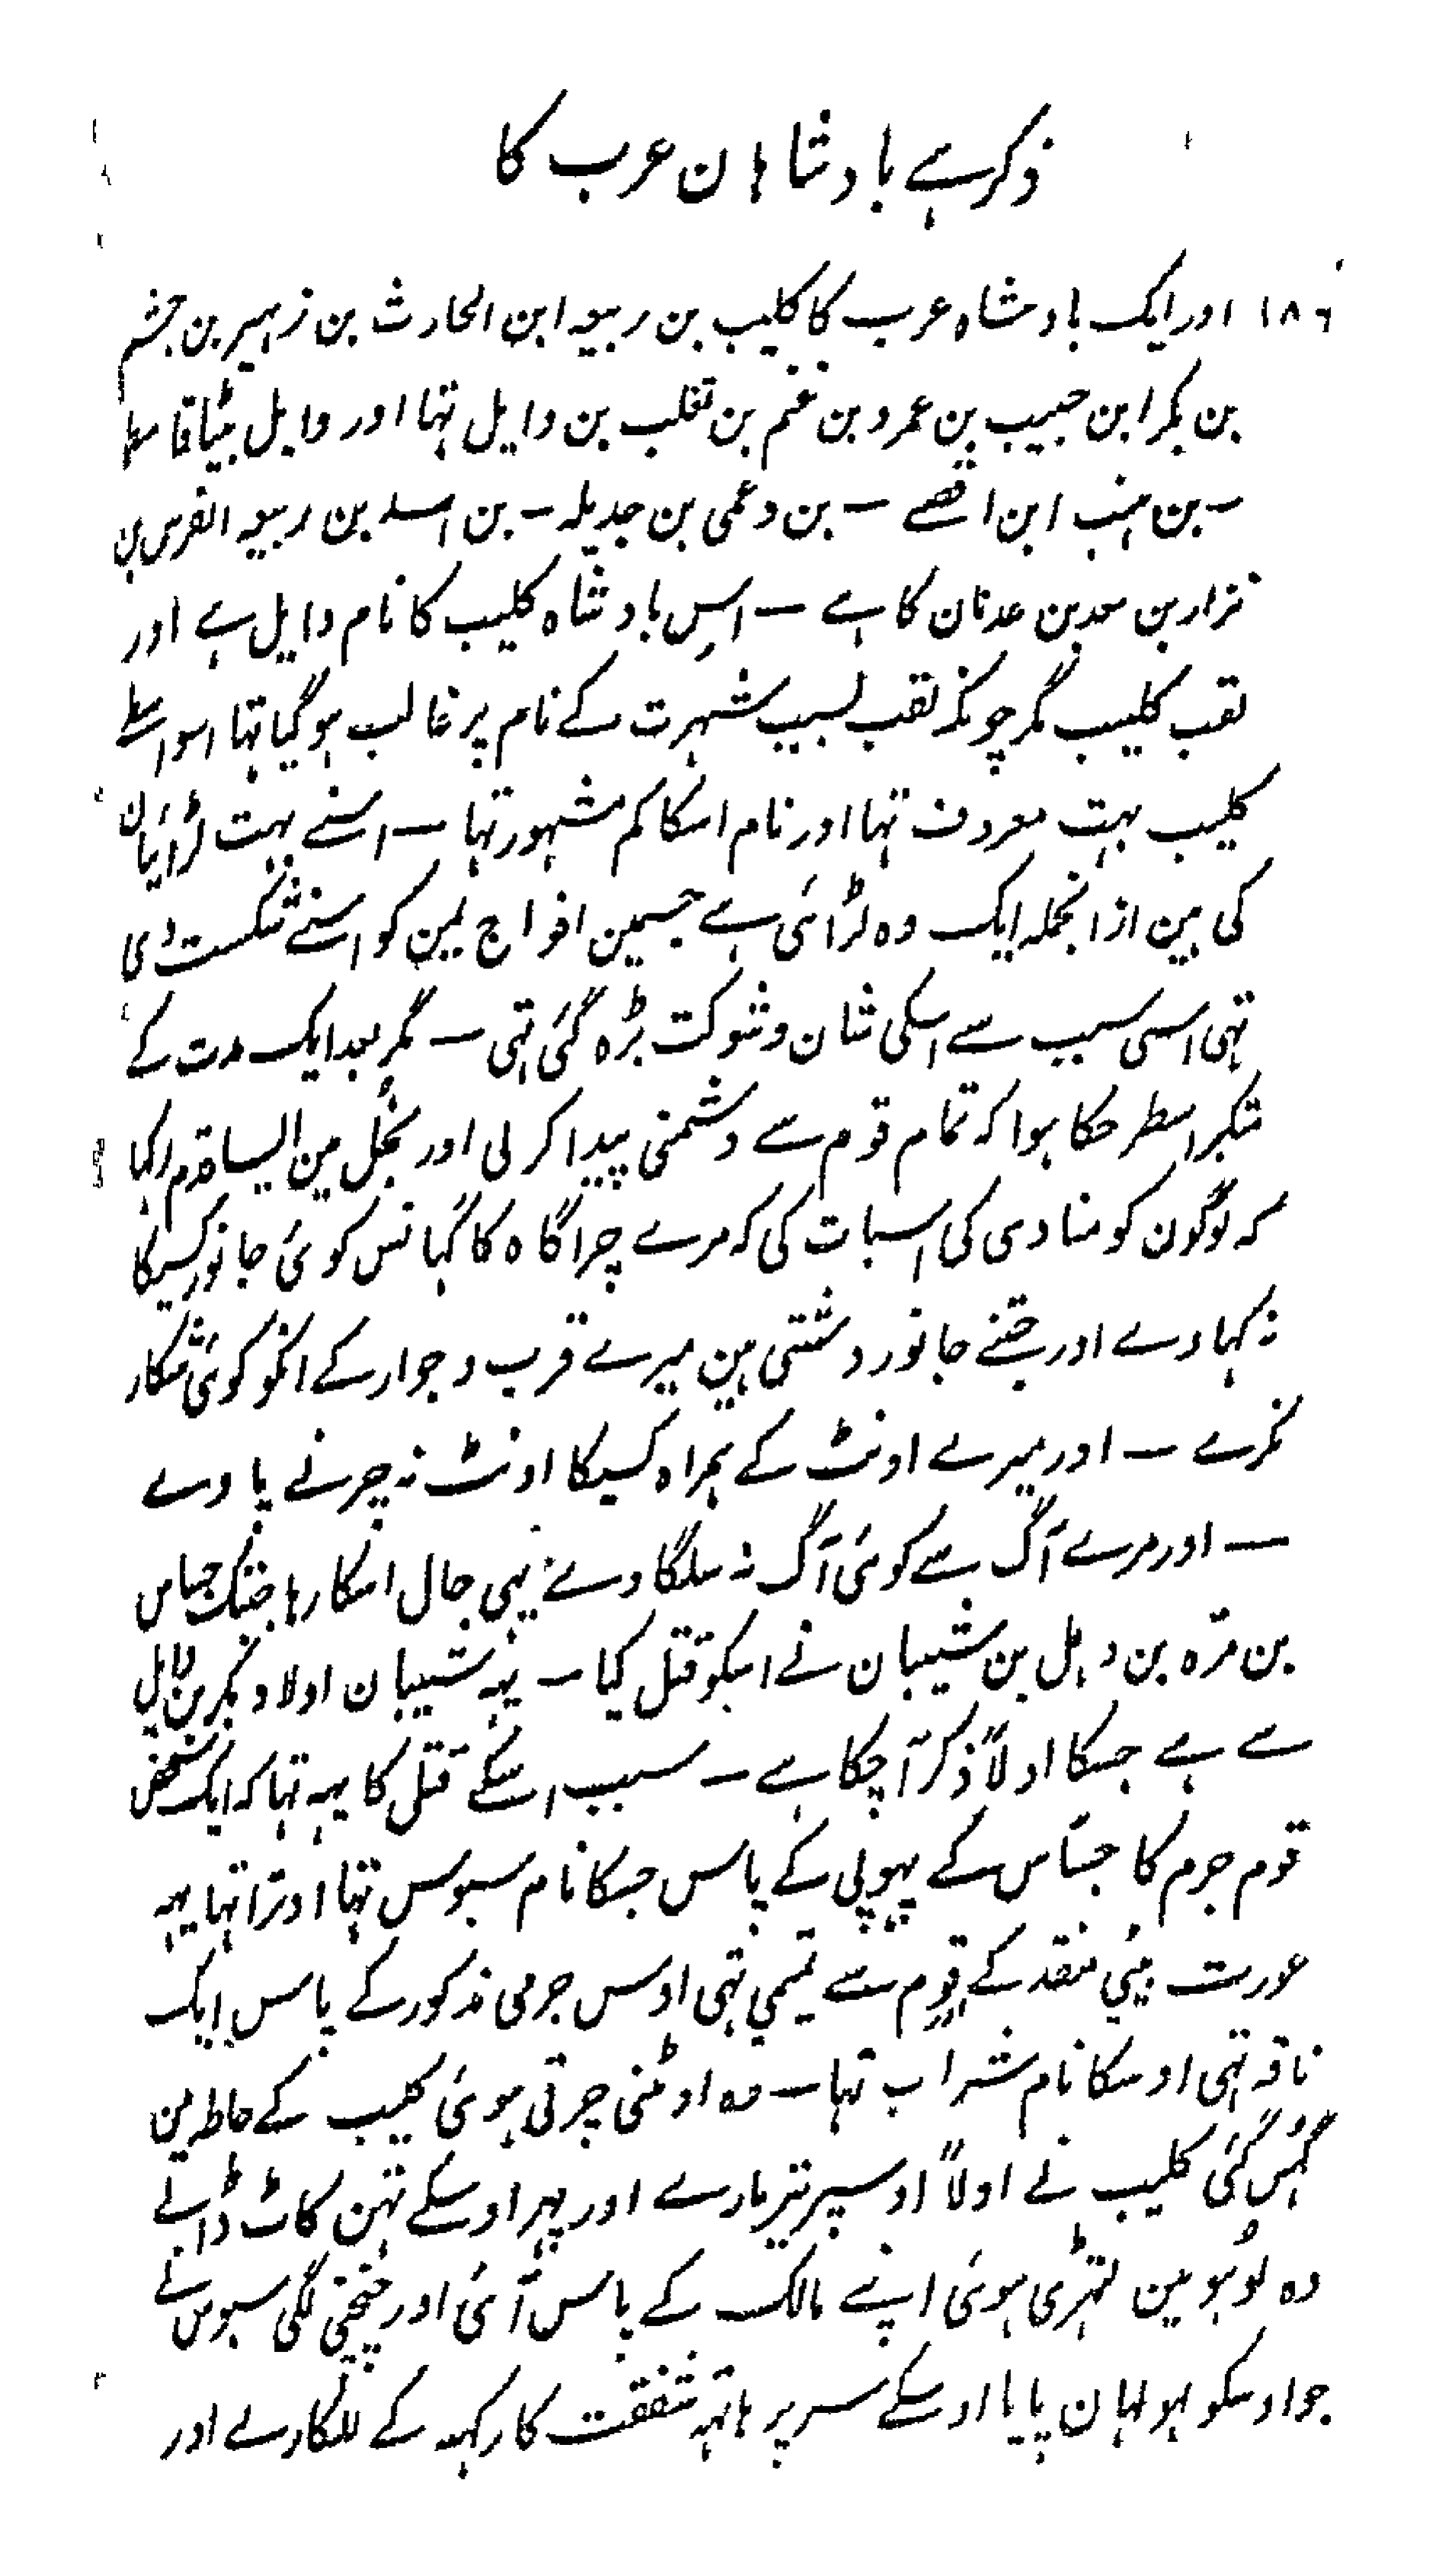 ذکر ہے بادشاہان عرب کا
۱۸۶ اور ایک بادشاہ عرب کا کلیب بن ربیعہ ابن الحارث بن زہیر بن جشم
بن بکر ابن حبیب بن عمرو بن غنم بن تغلب بن وایل تہا اور وایل بیٹا قاسط
۔ بن ہنب ابن اقصے ۔ بن دعمی بن جدیلہ ۔ بن اسد بن ربیعہ الفرس بن
نزار بن معد بن عدنان کا ہے ۔ اس بادشاہ کلیب کا نام وایل ہے اور
لقب کلیب مگر چونکہ لقب بسبب شہرت کے نام پر غالب ہو گیا تہا اسواسطے
کلیب بہت معروف تہا اور نام اسکا کم مشہور تہا ۔ اسنے بہت لڑائیان
کی ہین ازانجملہ ایک وہ لڑائی ہے جسمین افواج یمن کو اسنے شکست دی
تہی اسی سبب سے اسکی شان و شوکت بڑہ گئی تہی ۔ مگر بعد ایک مدت کے
متکبر اسطرحکا ہوا کہ تمام قوم سے دشمنی پیدا کر لی اور بخل مین ایسا قدم رکہا
کہ لوگون کو منادی کی اسبات کی کہ مرے چراگاہ کا گہانس کوئی جانور کسیکا
نہ کہاوے اور جتنے جانور دشتی ہین میرے قرب و جوار کے انکو کوئی شکار
نکرے ۔ اور میرے اونٹ کے ہمراہ کسیکا اونٹ نہ چرنے پاوے
۔ اور مرے آگ سے کوئی آگ نہ سلگاوے یہی حال اسکا رہا جبتک جساس
بن مرّہ بن دہل بن شیبان نے اسکو قتل کیا ۔ یہہ شیبان اولاد بکر بن وایل
سے ہے جسکا اولاً ذکر آچکا ہے ۔ سبب اسکے قتل کا یہہ تہا کہ ایک شخص
قوم جرم کا جسّاس کے پہوپی کے پاس جسکا نام سبوس تہا اوترا تہا یہہ
عورت بنی منقد کے قوم سے تمیمی تہی اوس جرمی مذکور کے پاس ایک
ناقہ تہی اوسکا نام شراب تہا ۔ وہ اوٹنی چرتی ہوئی کلیب کے حاطہ مین
گہس گئی کلیب نے اولاً اوسپر تیر مارے اور پہر اوسکے تہن کاٹ ڈالے
وہ لوہو مین لتہڑی ہوئی اپنے مالک کے پاس آئی اور چیخنی لگی سبوس نے
جو اوسکو لہولہان پایا اوسکے سر پر ہاتہہ شفقت کا رکہہ کے للکارے اور